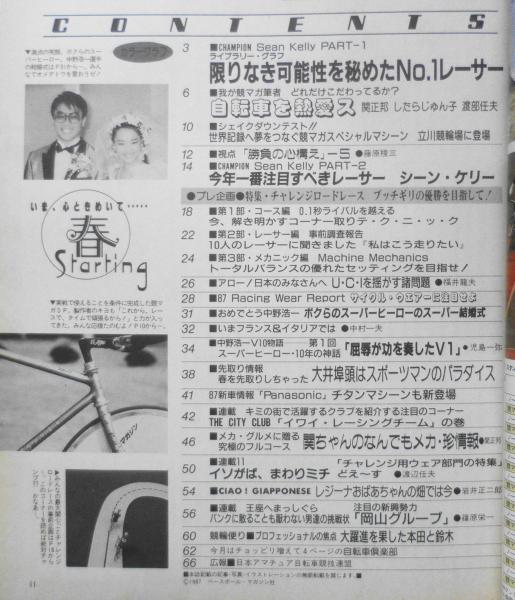 CONTENTS
カラーグラフ
3 ■CHAMPION Sean Kelly PART-1
ライブラリー・グラフ
限りなき可能性を秘めたNo.1レーサー
6 ■我が競マガ筆者 どれだけこだわってるか?
自転車を熱愛ス 関正邦 したらじゅん子 渡部任夫
10 ■シェイクダウンテスト!!
世界記録へ夢をつなぐ競マガスペシャルマシーン 立川競輪場に登場
12 ■視点「勝負の心構え」-5 ●藤原隆三
14 ■CHAMPION Sean Kelly PART-2
今年一番注目すべきレーサー シーン・ケリー
●プレ企画●特集・チャレンジロードレース ブッチギリの優勝を目指して!
18 ■第1部・コース編 0.1秒ライバルを越える
今、解き明かすコース取りテ・ク・ニ・ッ・ク
22 ■第2部・レーサー編 事前調査報告
10人のレーサーに聞きました『私はこう走りたい』
24 ■第3部・メカニック編 Machine Mechanics
トータルバランスの優れたセッティングを目指せ!
26 ■アロー/日本のみなさんへ U・C・Iを揺がす諸問題 ●横井龍夫
28 ■87 Racing Wear Report サイクル・ウェアーに注目せよ
31 ■おめでとう中野浩一 ボクらのスーパーヒーローのスーパー結婚式
32 ■いまフランス&イタリアでは ●中村一夫
34 ■中野浩一V10物語── 第1回
スーパーヒーロー・10年の神話「屈辱が功を奏したV1」●児島一弥
38 ■先取り情報
春を先取りしちゃった 大井埠頭はスポーツマンのパラダイス
41 87新車情報「Panasonic」チタンマシーンも新登場
42 ■連載 キミの街で活躍するクラブを紹介する注目のコーナー
THE CITY CLUB「イワイ・レーシングチーム」の巻
46 ■メカ・グルメに贈る
究極のフルコース 関ちゃんのなんでもメカ・珍情報 ●関正邦
50 ■連載11 「チャレンジ用ウェア部門の特集」
イソがば、まわりミチ どえ〜す ●渡辺任夫
54 ■CIAO! GIAPPONESE レジーナおばあちゃんの畑では今 ●岩井正二郎
56 ■連載 王座へまっしぐら 注目の新興勢力
バンクに散ることも厭わない男達の挑戦状「岡山グループ」●篠原栄一
60 競輪便り■プロフェッショナルの焦点 大躍進を果した本田と鈴木
62 今月はチョッピリ増えて4ページの自転車倶楽部
66 広報■日本アマチュア自転車競技連盟
■本誌記載の記事・写真・イラストレーションの無断転載を禁じます。■
©1987 ベースボール・マガジン社
いま、心ときめいて・・・・・
春
Starting
マガジン